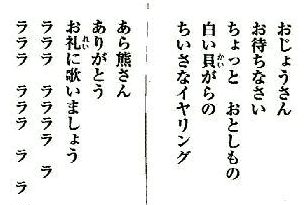 おじょうさん
お待ちなさい
ちょっと　おとしもの
白い貝がらの
ちいさなイヤリング
あら熊さん
ありがとう
お礼に歌いましょう
ラララ　ララララ　ラ
ラララ　ラ　ラ　ラ